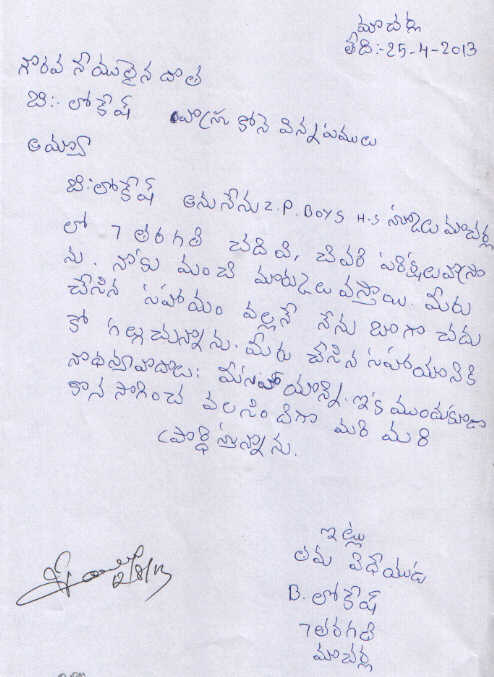 మాచర్ల
తేది:-25-4-2013
గౌరవ నీయులైన దాత
బి:- లోకేష్ వ్రాసు కొనే విన్నపములు
అమ్మా
బి:లోకేష్ అను నేను Z.P. BOYS H.S స్కూలు మాచర్ల
లో 7 తరగతి చదివి, చివరి పరిక్షలు వ్రాసా
ను. నాకు మంచి మార్కులు వస్తాయి. మీరు
చేసిన సహాయం వల్లనే నేను బాగా చదు
కో గల్గుచున్నాను. మీరు చేసిన సహాయానికి
నాధన్యావాదాలు: మీసహాయాన్ని ఇక ముందుకూడా
కొన సాగించ వలసిందిగా మరి మరి
ప్రార్ధిస్తున్నాను.
ఇట్లు
తమ విధేయుడ
B. లోకేష్
7 తరగతి
మాచర్ల